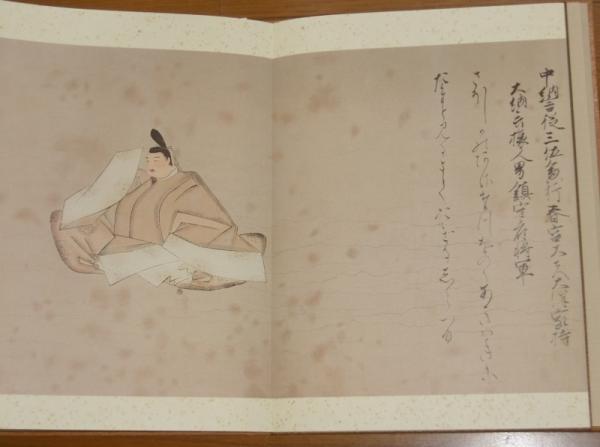 中納言従三位兼行春宮大夫大伴宿祢家持
大納言旅人男鎮守府将軍
さをしかのあさたつをのゝあきはきに
たまとみるまておけるしらつゆ